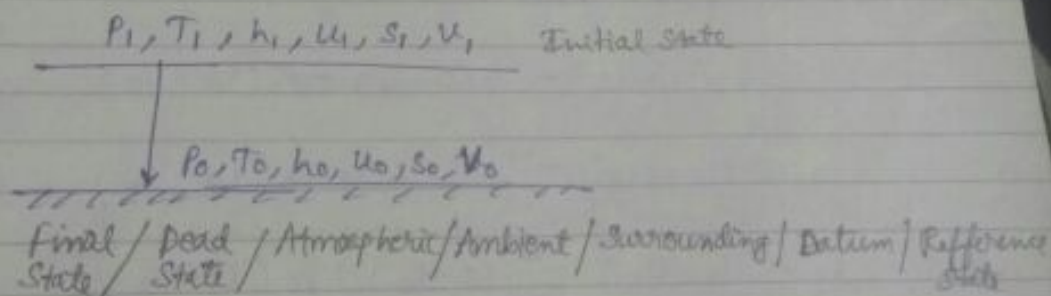 P1, T1, h1, u1, s1, v1 Initial State
P0, T0, h0, u0, s0, v0
Final / Dead / Atmospheric / Ambient / Surrounding / Datum / Refference
State / State / State